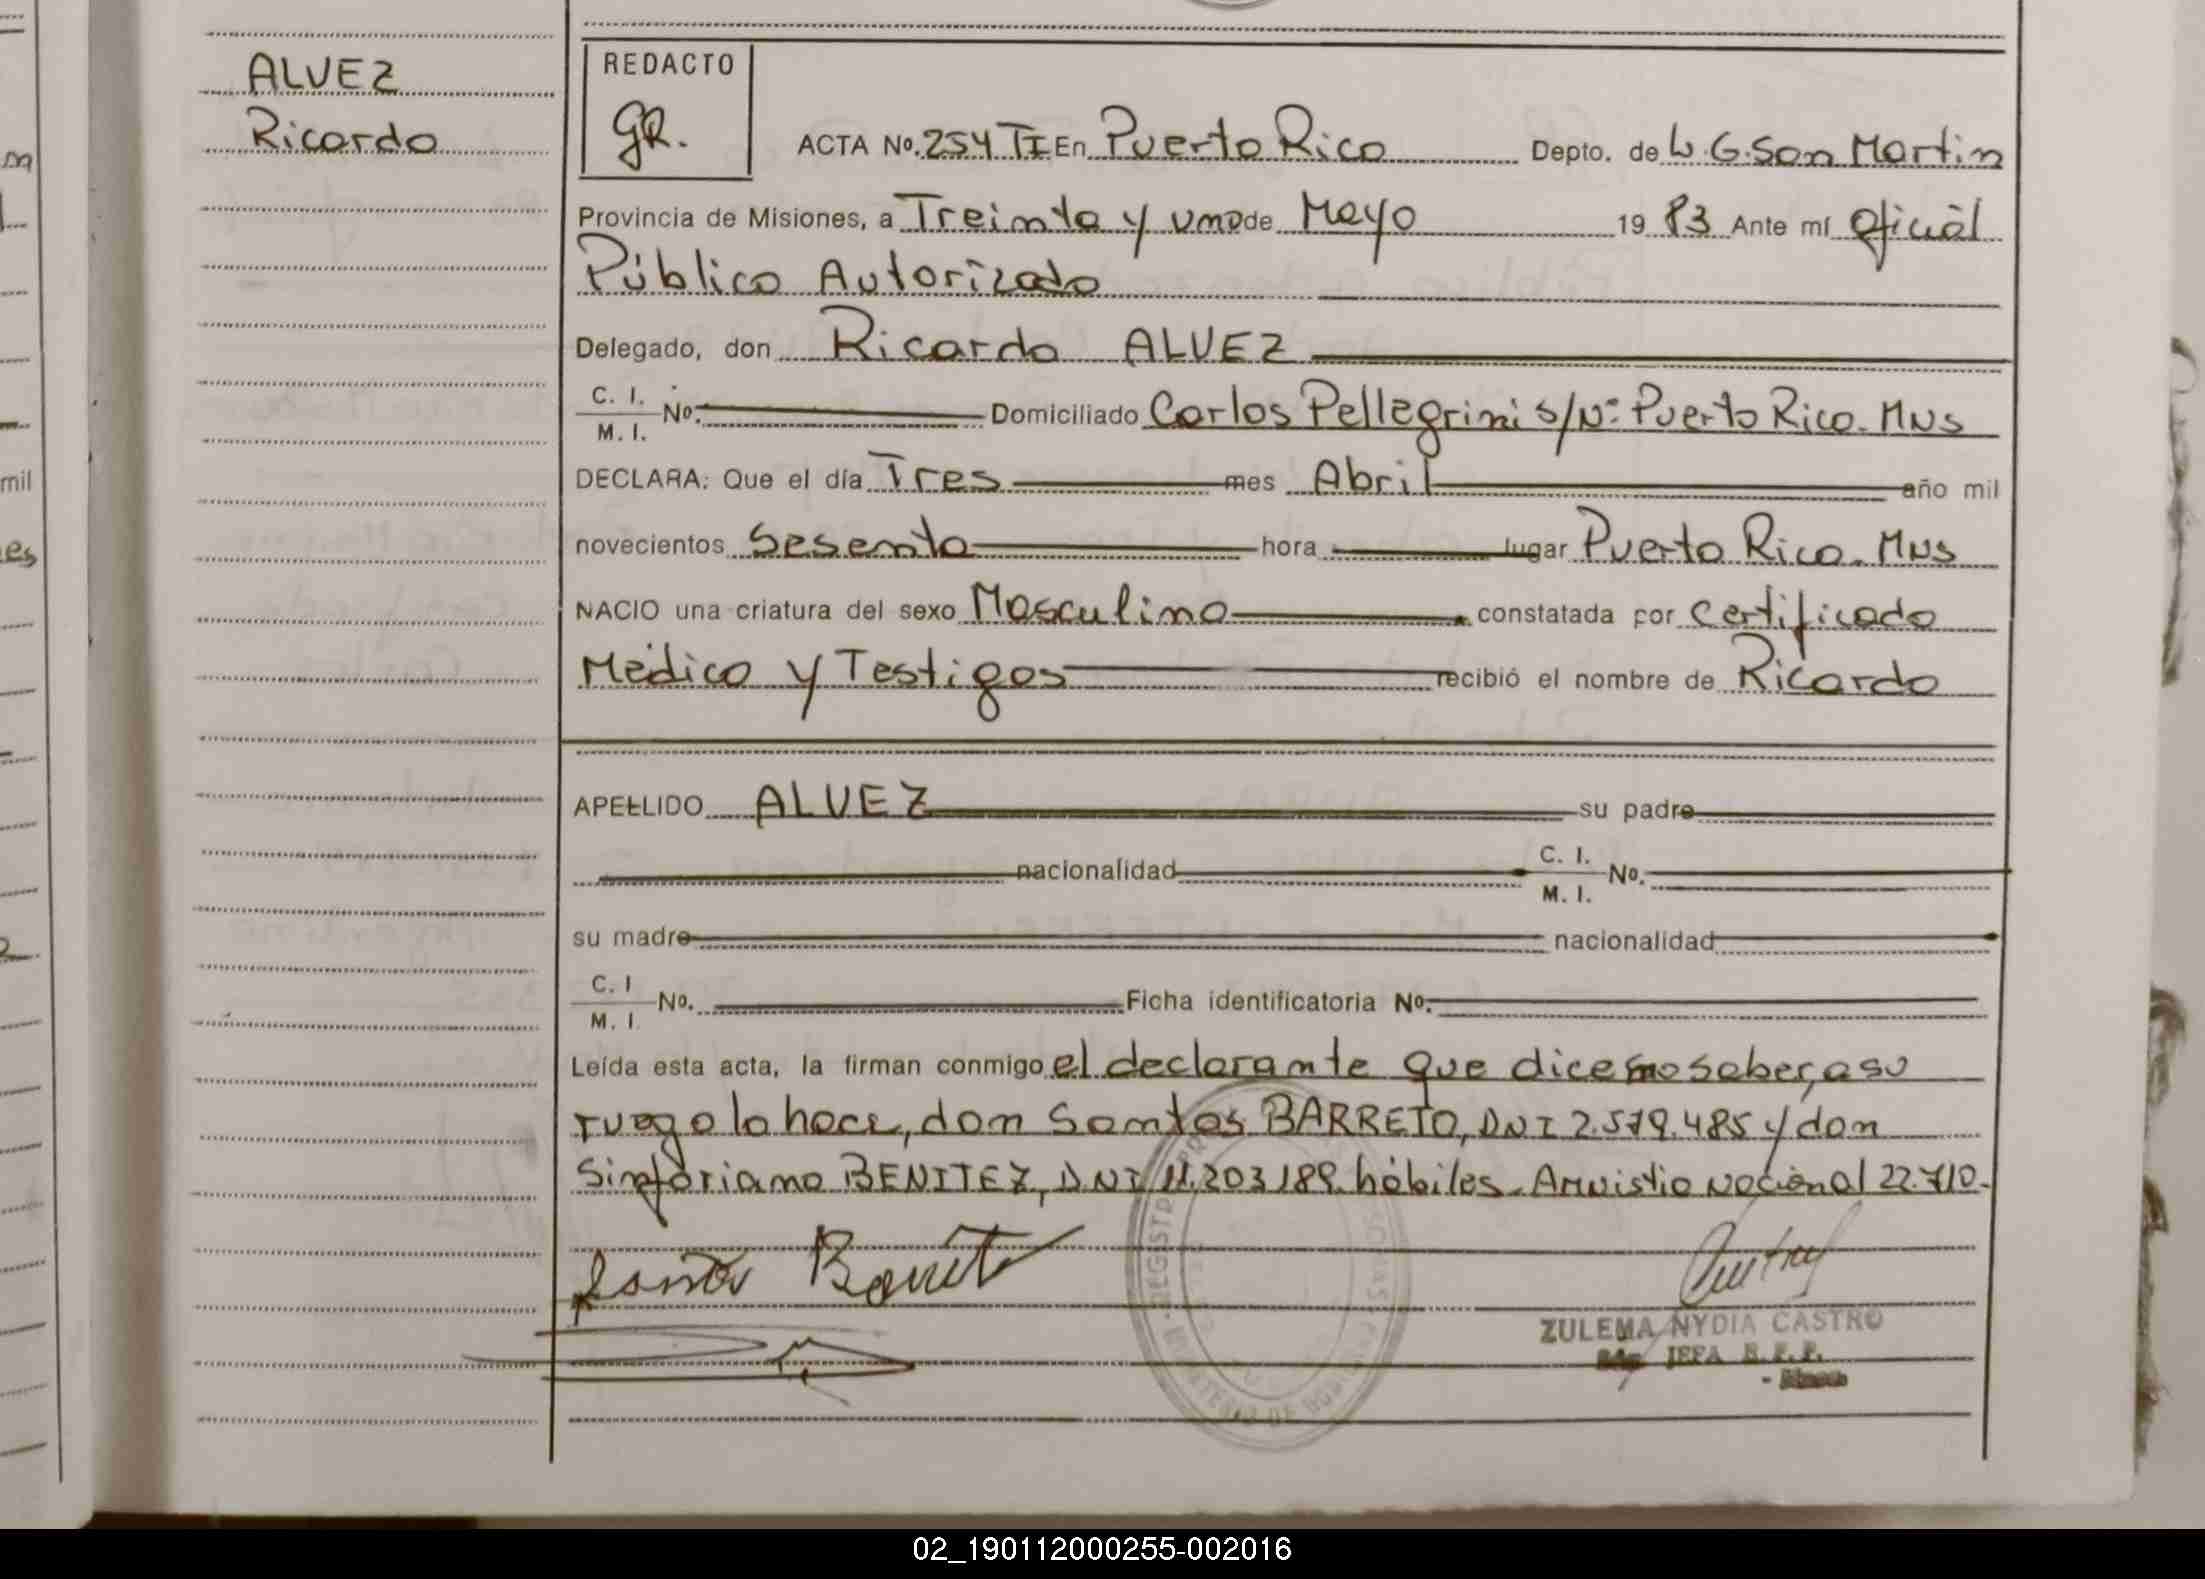 ALVEZ
Ricardo
REDACTO
GR.
ACTA No. 254 TI En Puerto Rico Depto. de L.G.San Martin
Provincia de Misiones, a Treinta y uno de Mayo 19 83 Ante mí Oficial
Público Autorizado
Delegado, don Ricardo ALVEZ
C. I.
M. I. No. Domiciliado Carlos Pellegrini S/Nº Puerto Rico. Mns
DECLARA: Que el día Tres mes Abril año mil
novecientos Sesenta hora lugar Puerto Rico. Mns
NACIO una criatura del sexo Masculino constatada por Certificado
Médico y Testigos recibió el nombre de Ricardo
APELLIDO ALVEZ su padre
nacionalidad C. I. M. I. No.
su madre nacionalidad
C. I M. I. No. Ficha identificatoria No.
Leída esta acta, la firman conmigo el declarante que dice no saber, a su
ruego lo hace, don Santos BARRETO, DNI 2.579.485 y don
Sinforiano BENITEZ, DNI 11.203.189. hábiles. Amnistia Nacional 22.710.
ZULEMA NYDIA CASTRO
JEFA R.P.P.
mil
es
02_190112000255-002016